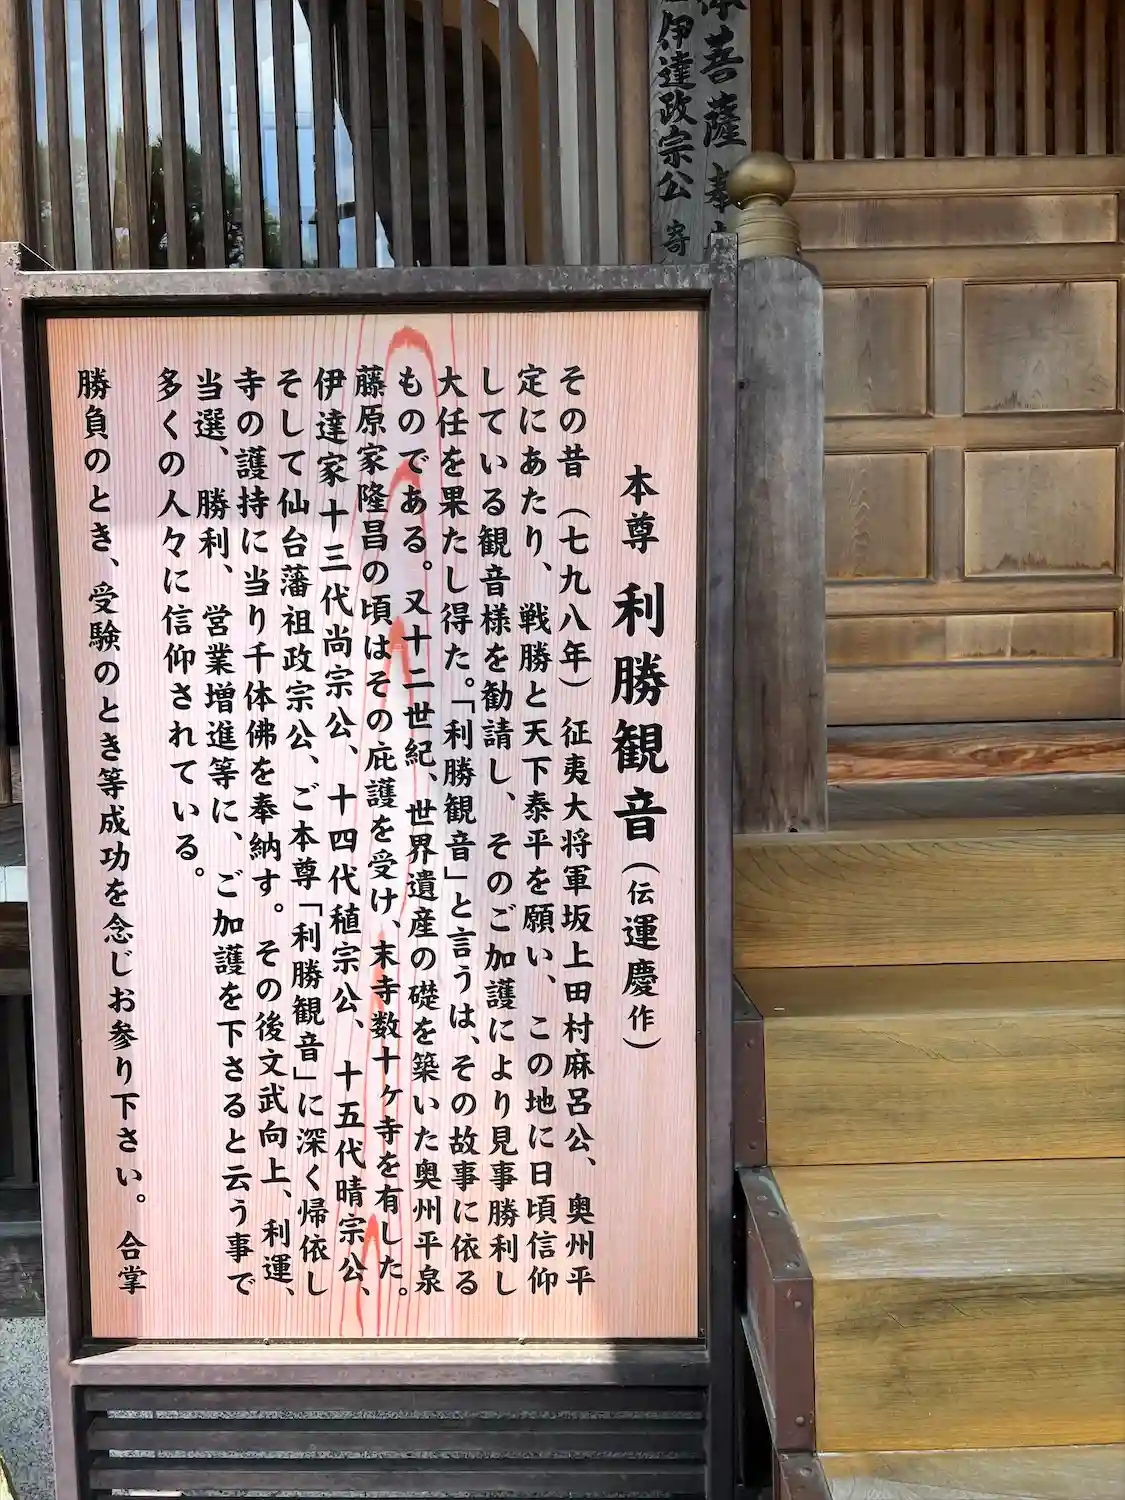 本尊 利勝観音(伝運慶作)
その昔(七九八年)征夷大将軍坂上田村麻呂公、奥州平
定にあたり、戦勝と天下泰平を願い、この地に日頃信仰
している観音様を勧請し、そのご加護により見事勝利し
大任を果たし得た。「利勝観音」と言うは、その故事に依る
ものである。又十二世紀、世界遺産の礎を築いた奥州平泉
藤原家隆昌の頃はその庇護を受け、末寺数十ヶ寺を有した。
伊達家十三代尚宗公、十四代稙宗公、十五代晴宗公、
そして仙台藩祖政宗公、ご本尊「利勝観音」に深く帰依し
寺の護持に当り千体佛を奉納す。その後文武向上、利運、
当選、勝利、営業増進等に、ご加護を下さると云う事で
多くの人々に信仰されている。
勝負のとき、受験のとき等成功を念じお参り下さい。 合掌
体菩薩奉
伊達政宗公 寄